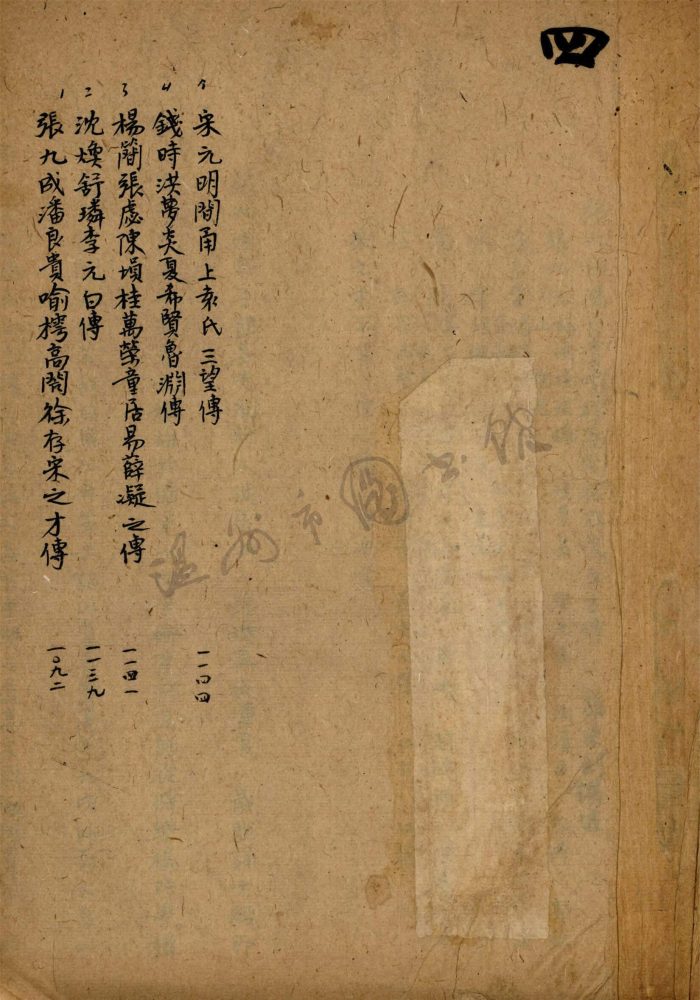 四
宋元明間甬上袁氏三望傳 一一四四
錢時洪夢炎夏希賢魯淵傳
楊簡張虙陳塤桂萬榮童居易薛凝之傳 一一四一
二 沈煥舒璘李元白傳 一一三九
1 張九成潘良貴喻樗高閌徐存宋之才傳 一〇九二
溫州市圖書館